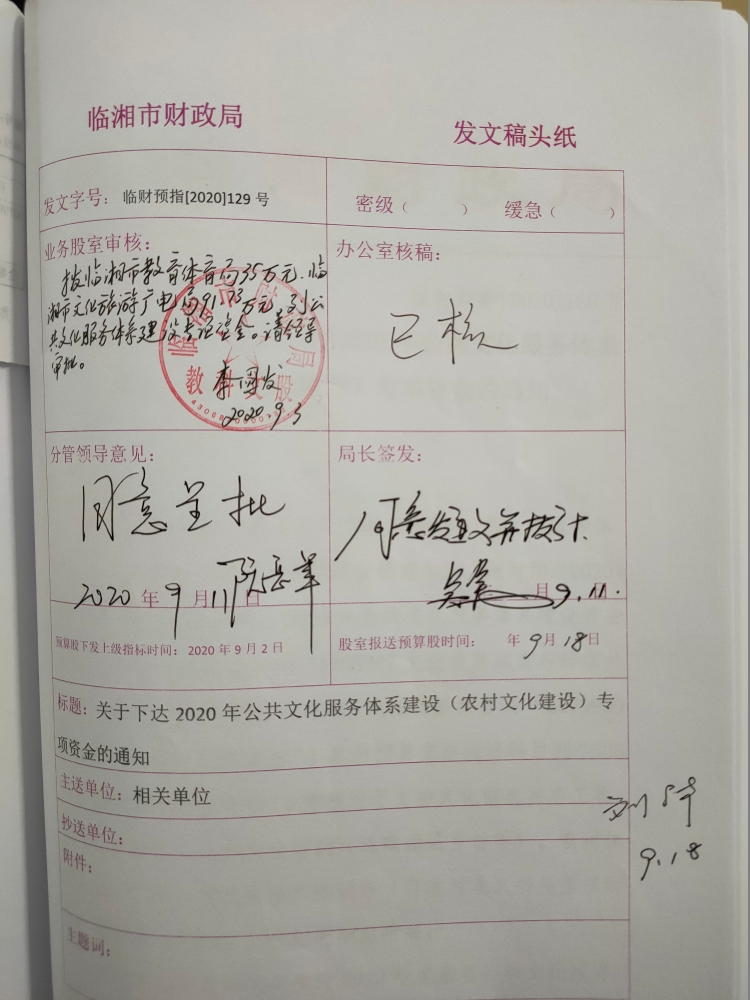 临湘市财政局
发文稿头纸
发文字号：临财预指[2020]129 号
密级（ ） 缓急（ ）
业务股室审核：
拨临湘市教育体育局35万元，临
湘市文化旅游广电局91.73万元，列公
共文化服务体系建设专项资金。请领导
审批。
教科文股
2020.9.3
办公室核稿：
已核
分管领导意见：
同意呈批
2020 年 9 月 11 日
局长签发：
同意发文并拨款
月 日
9.11.
预算股下发上级指标时间：2020 年 9 月 2 日
股室报送预算股时间： 年 9 月 18 日
标题：关于下达 2020 年公共文化服务体系建设（农村文化建设）专
项资金的通知
主送单位：相关单位
抄送单位：
附件：
9.18
主题词：